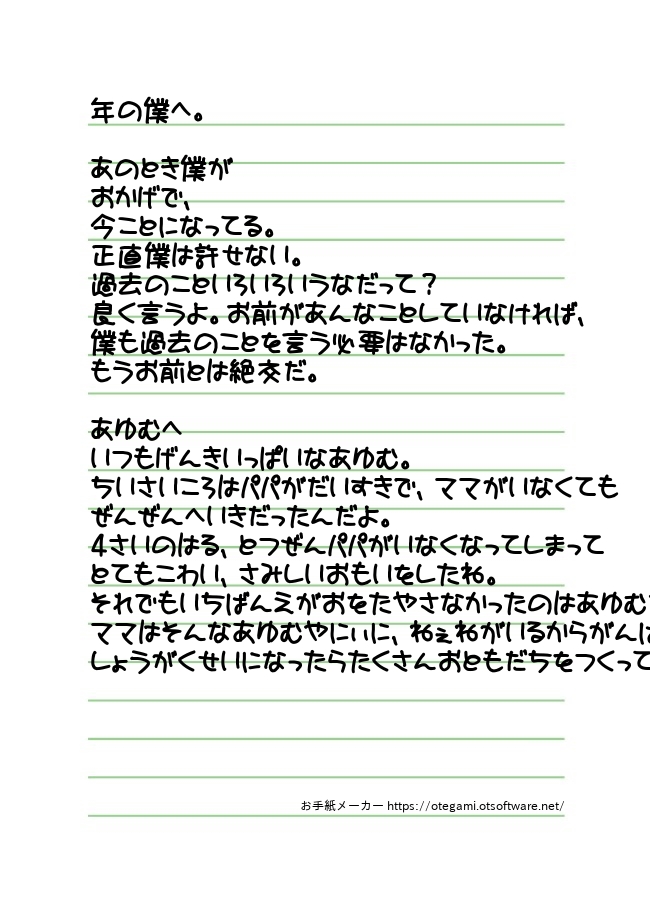 年の僕へ。
あのとき僕が
おかげで、
今ことになってる。
正直僕は許せない。
過去のこといろいろいうなだって？
良く言うよ。お前があんなことしていなければ、
僕も過去のことを言う必要はなかった。
もうお前とは絶交だ。
あゆむへ
いつもげんきいっぱいなあゆむ。
ちいさいころはパパがだいすきで、ママがいなくても
ぜんぜんへいきだったんだよ。
4さいのはる、とつぜんパパがいなくなってしまって
とてもこわい、さみしいおもいをしたね。
それでもいちばんえがおをたやさなかったのはあゆむ
ママはそんなあゆむやにぃに、ねぇねがいるからがん
しょうがくせいになったらたくさんおともだちをつくって
お手紙メーカー https://otegami.otsoftware.net/